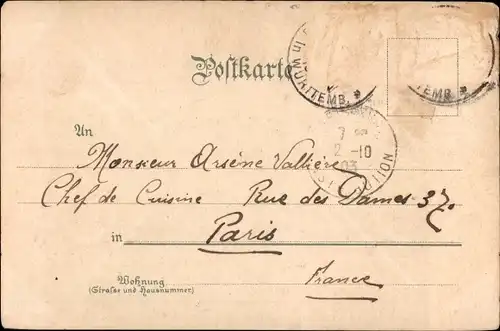 in WÜRTTEMB.
TEMB.
Postkarte
7
2 -10
03
TION
An
Monsieur Arsène Vallière
Chef de Cuisine Rue des Dames 37.
in Paris
France
Wohnung
(Straße und Hausnummer)